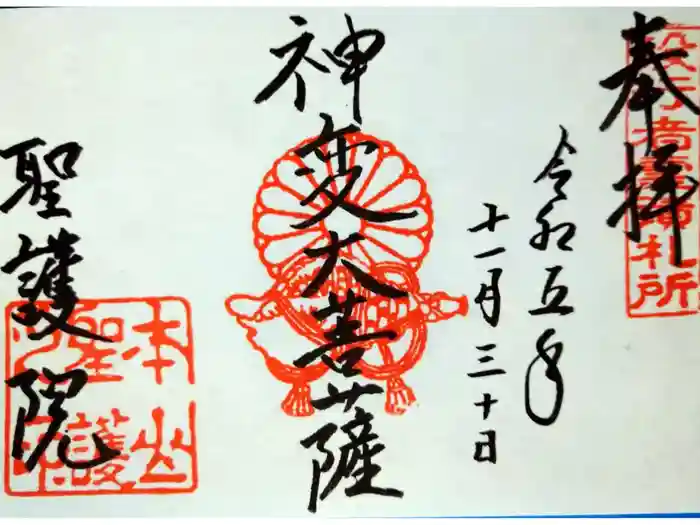 奉拝
役行者霊蹟札所
令和五年
十一月三十日
神変大菩薩
聖護院
本山
聖護